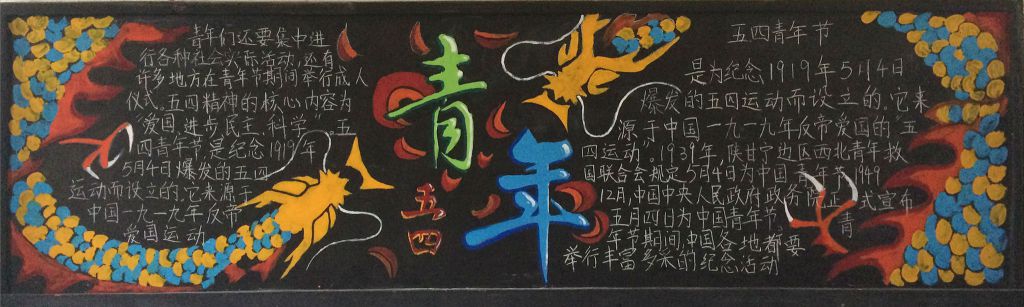 青年们还要集中进
行各种社会实际活动,还有
许多地方在青年节期间举行成人
仪式。五四精神的核心内容为
“爱国、进步、民主、科学”。五
四青年节是纪念1919年
5月4日爆发的五四
运动而设立的。它来源于
中国一九一九年反帝
爱国运动
青年
五四
五四青年节
是为纪念1919年5月4日
爆发的五四运动而设立的。它来
源于中国一九一九年反帝爱国的“五
四运动。1939年,陕甘宁边区西北青年救
国联合会规定5月4日为中国青年节1949
12月,中国中央人民政府政务院正式宣布
五月四日为中国青年节 青
年节期间,中国各地都要
举行丰富多采的纪念活动